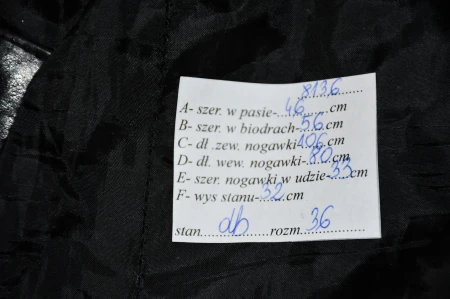 8136
A- szer. w pasie-46cm
B- szer. w biodrach-56cm
C- dł .zew. nogawki-106cm
D- dł. wew. nogawki-80cm
E- szer. nogawki w udzie-33cm
F- wys stanu-32cm
stan db rozm 36